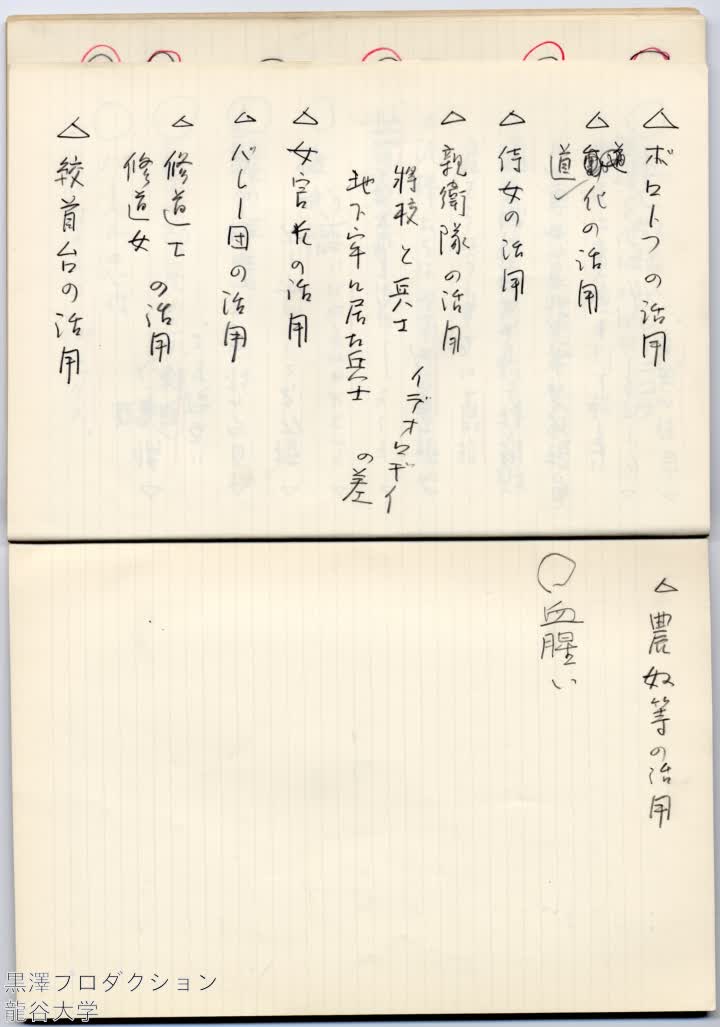 △ ボロトフの活用
△ 道化の活用
道
△ 侍女の活用
△ 親衛隊の活用
将校と兵士
地下牢に居た兵士
イデオロギイ
の差
△ 女官長の活用
△ バレー団の活用
△ 修道士
修道女
の活用
△ 絞首台の活用
△ 農奴等の活用
○ 血腥い
黒澤プロダクション
龍谷大学